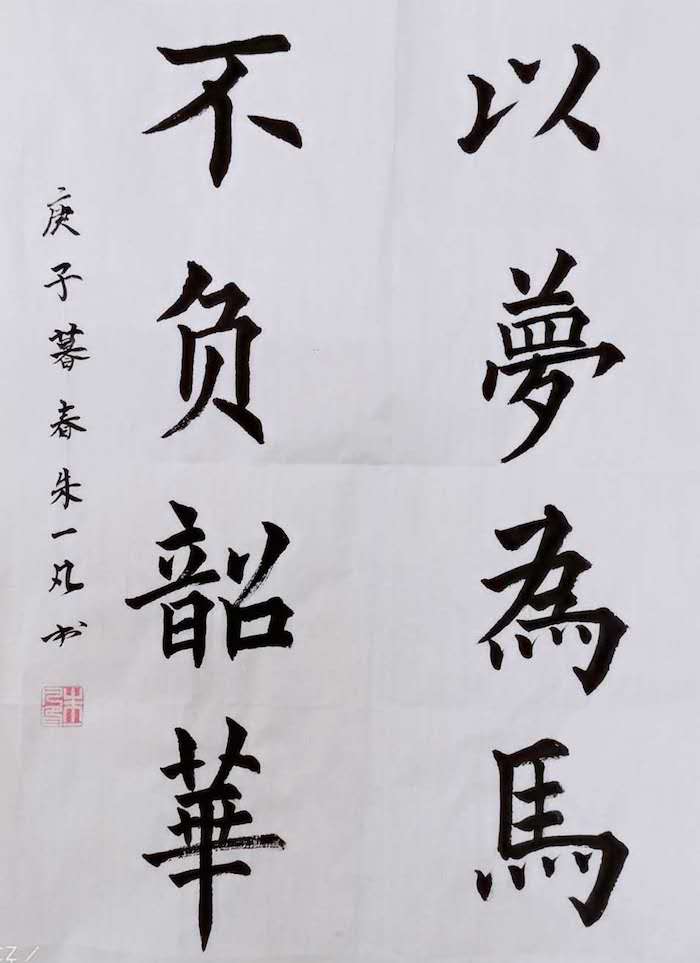 以夢為馬
不负韶華
庚子暮春朱一凡书